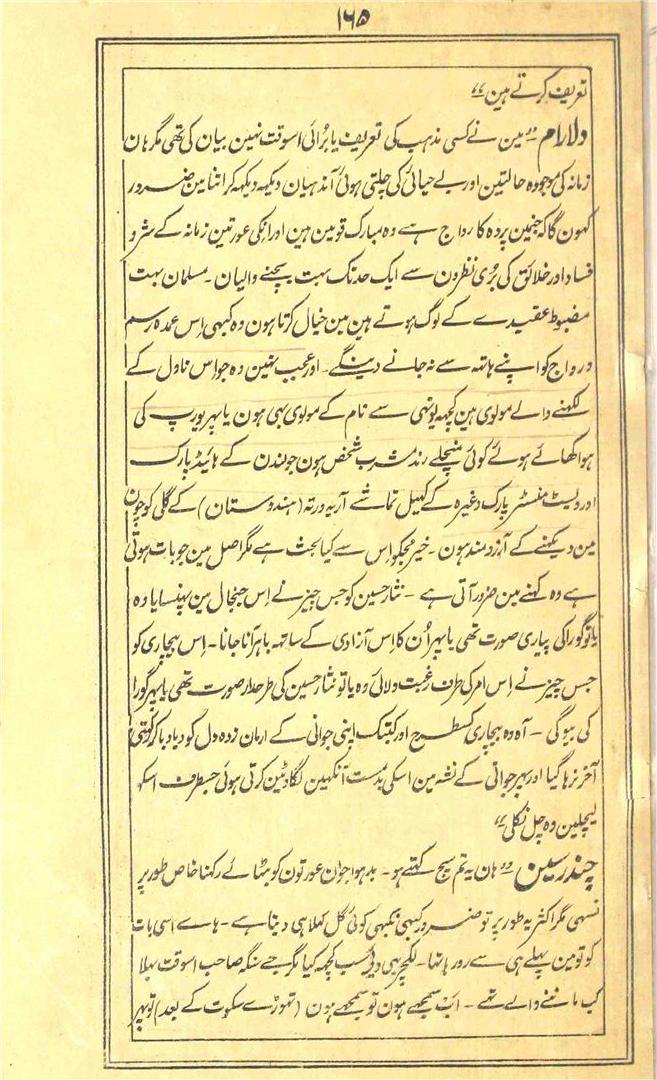 ۱۶۵
تعریف کرتے ہین"
دلارام "مین نے کسی مذہب کی تعریف یا بُرائی اسوقت نہین بیان کی تھی مگر ہان
زمانہ کی موجودہ حالتین اور بے حیائی کی چلتی ہوئی آندہیان دیکہہ دیکہہ کر اتنا مین ضرور
کہون گا کہ جنمین پردہ کا رواج ہے وہ مبارک قومین ہین اور انکی عورتین زمانہ کے شر و
فساد اور خلائق کی بُری نظرون سے ایک حد تک بہت بچنے والیان ۔ مسلمان بہت
مضبوط عقیدے کے لوگ ہوتے ہین مین خیال کرتا ہون وہ کبہی اِس عمدہ رسم
و رواج کو اپنے ہاتہہ سے نہ جانے دینگے ۔ اور عجب نہین وہ جو اِس ناول کے
لکہنے والے مولوی ہین کچہہ یونہی سے نام کے مولوی ہی ہون یا پہر یورپ کی
ہوا کھائے ہوئے کوئی منچلے رند مشرب شخص ہون جو لندن کے ہائیڈ پارک
اور ویسٹ منسٹر پارک وغیرہ کے کہیل تماشے آریہ ورتہ (ہندوستان) کے گلی کوچون
مین دیکہنے کے آرزومند ہون ۔ خیر مجکو اِس سے کیا بحث ہے مگر اصل مین جو بات ہوتی
ہے وہ کہنے مین ضرور آتی ہے ۔ نثار حسین کو جس چیز نے اِس جنجال مین پہنسایا وہ
یا تو گورا کی پیاری صورت تھی یا پہر اُن کا اِس آزادی کے ساتہہ باہر آنا جانا ۔ اِس بیچاری کو
جس چیز نے اِس امر کی طرف رغبت دلائی وہ یا تو نثار حسین کی طرحدار صورت تھی یا پہر گورا
کی بیوگی ۔ آہ وہ بیچاری کسطرح اور کبتک اپنی جوانی کے ارمان زدہ دل کو دبا دبا کر رکہتی
آخر نرہا گیا اور پہر جوانی کے نشہ مین اسکی بدمست آنکہین لگاوٹین کرتی ہوئی جسطرف اسکو
لیچلین وہ چل نکلی"
چندر سین "ہان یہ تم سچ کہتے ہو ۔ بدہوا جوان عورتون کو بٹہائے رکہنا خاص طور پر
نسہی مگر اکثریہ طور پر تو ضرور کبہی نکبہی کوئی گل کہلا ہی دیتا ہے ۔ ہاے اسی بات
کو تو مین پہلے ہی سے رو رہا تہا ۔ لکچر بہی دیے سب کچہہ کیا مگر جے سنگہ صاحب اسوقت بہلا
کب ماننے والے تہے ۔ اب سمجہے ہون تو سمجہے ہون (تہوڑے سکوت کے بعد) تو پہر